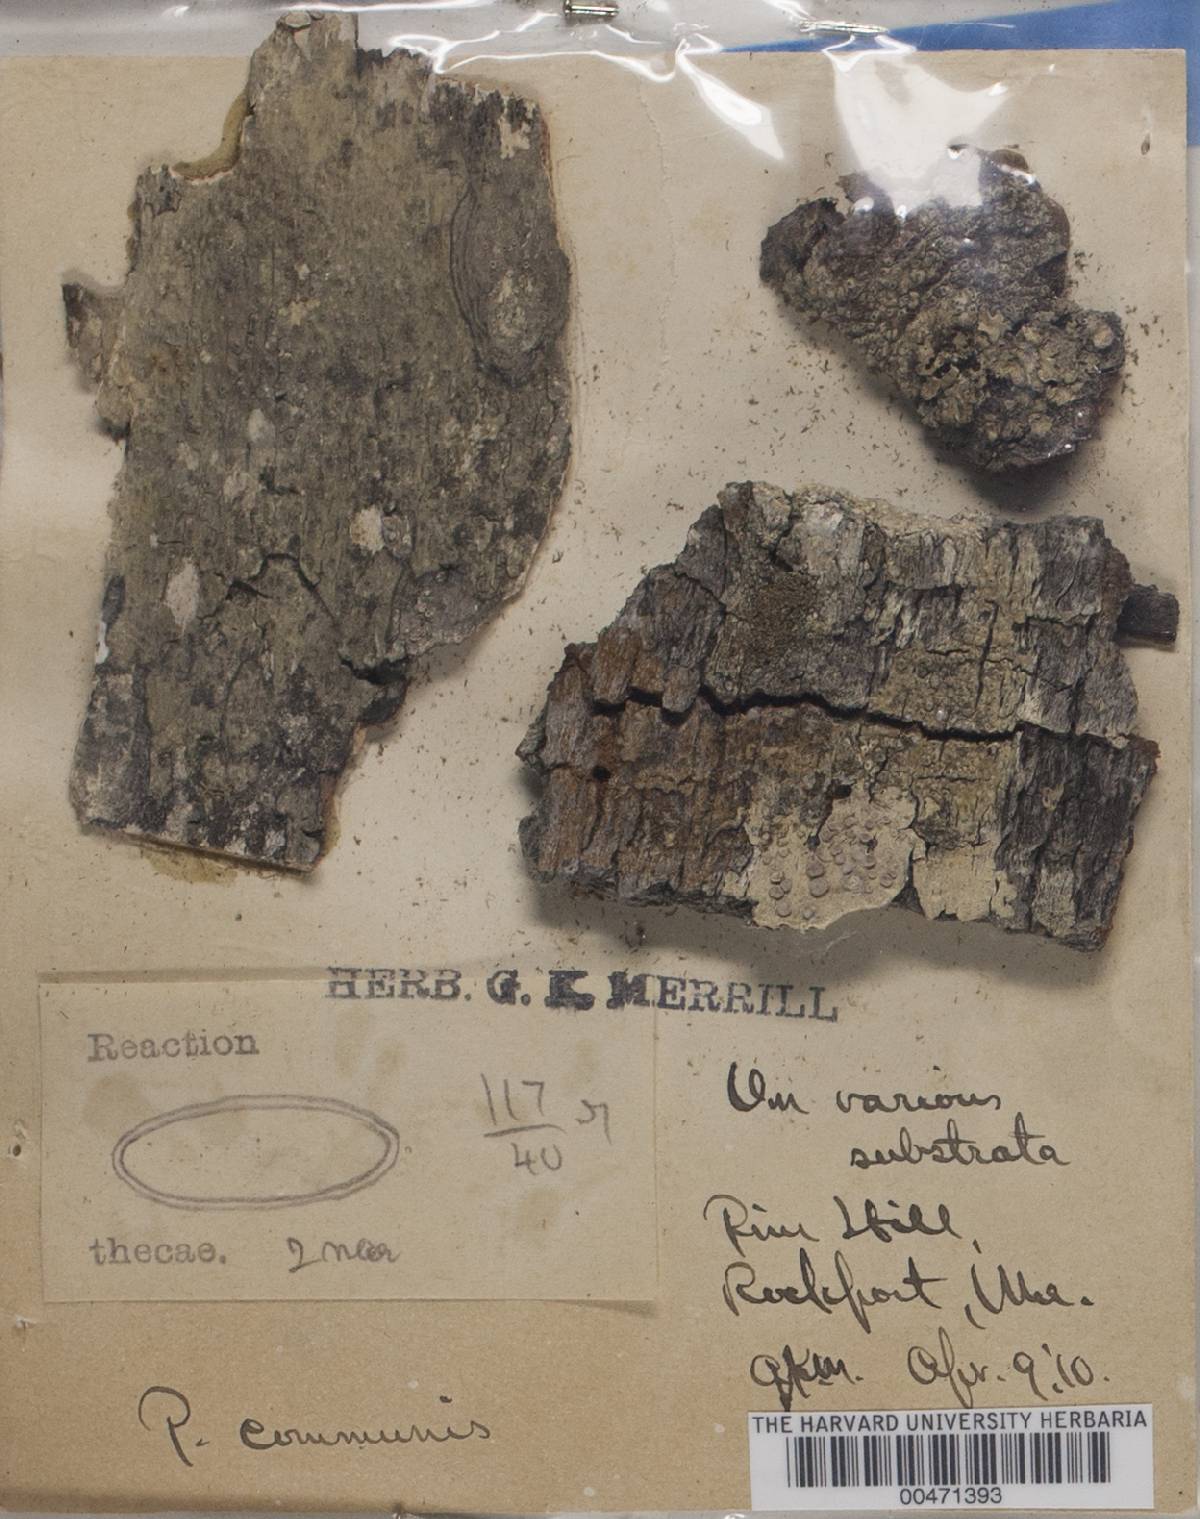 HERB. G. K. MERRILL
Reaction
117
40
thecae.
On various
substrata
Rockport, Me.
GKM. Apr. 9,'10.
P. communis
THE HARVARD UNIVERSITY HERBARIA
00471393